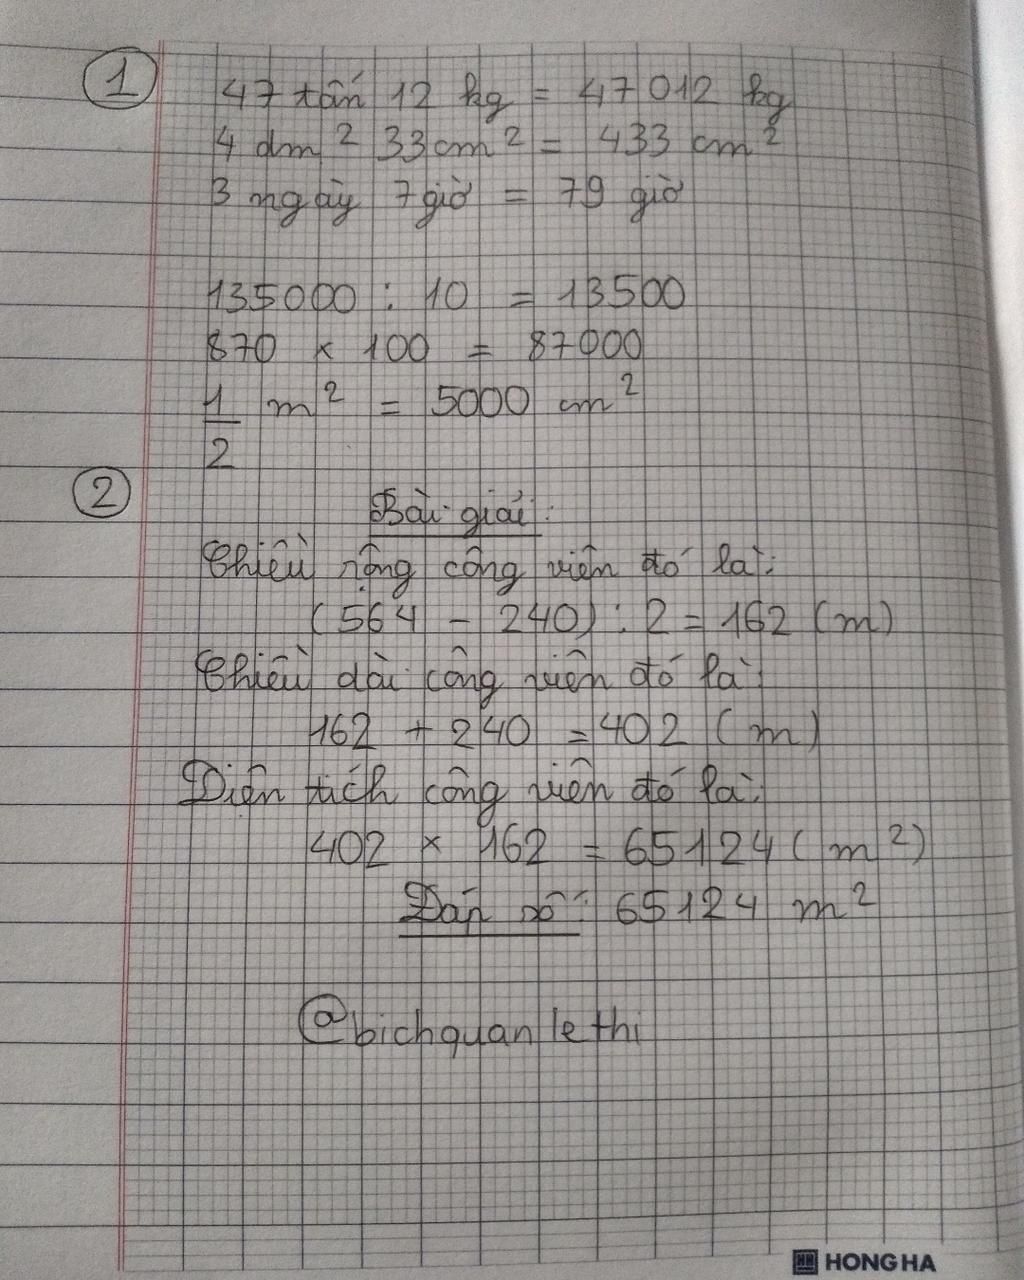 1
47 tấn 12 kg = 47012 kg
4 dm² 33cm² = 433 cm²
3 ngày 7giờ = 79 giờ
135000 : 10 = 13500
870 × 100 = 87000
1/2 m² = 5000 cm²
2
Bài giải:
Chiều rộng công viên đó là:
(564 - 240) : 2 = 162 (m)
Chiều dài công viên đó là:
162 + 240 = 402 (m)
Diện tích công viên đó là:
402 × 162 = 65124 (m²)
Đáp số: 65124 m²
@bichquanlethi
HONG HA